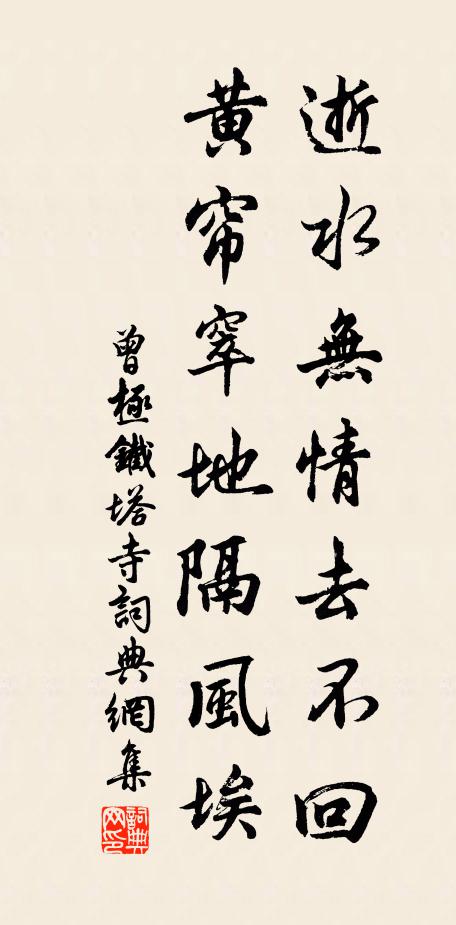 逝水無情去不回
黄帘窣地隔風埃
曾極鐵塔寺詞典網集
詞典網印